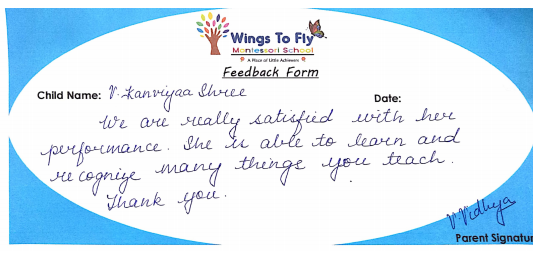 Wings To Fly
Montessori School
A Place of Little Achievers
Feedback Form
Child Name: V. Kanviyaa Shree
Date:
We are really satisfied with her
performance. She is able to learn and
recognize many things you teach.
Thank you.
V. Vidhya
Parent Signatur